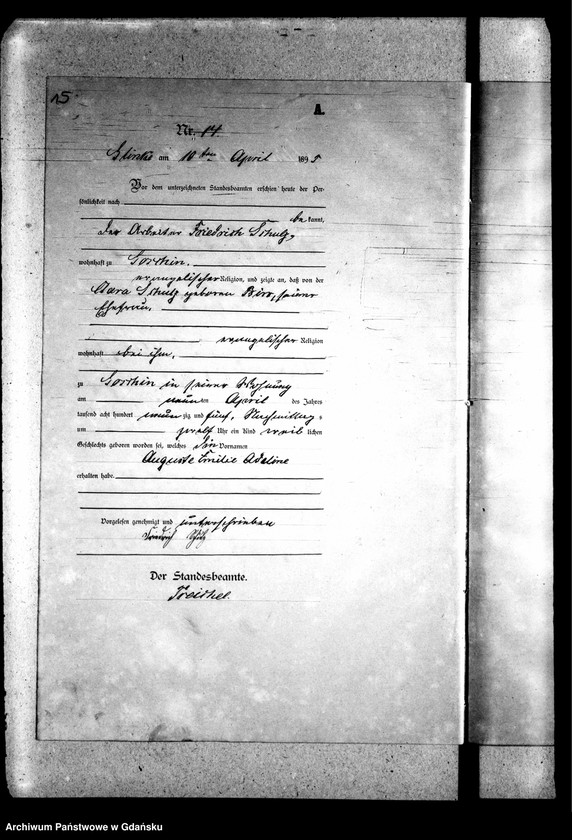 15
A.
Nr. 14.
am 10ten April 1895
Vor dem unterzeichneten Standesbeamten erschien heute der Per-
sönlichkeit nach
be kannt,
der Arbeiter Friedrich Schulz,
wohnhaft zu Gosshin.
evangelischer Religion, und zeigte an, daß von der
Clara Schulz geborenen seiner
Ehefrau,
evangelischer Religion
wohnhaft bei ihm,
zu Gosshin in seiner Wohnung
am neun ten April des Jahres
tausend acht hundert neun zig und fünf, Nachmittags
um zwölf Uhr ein Kind weib lichen
Geschlechts geboren worden sei, welches die Vornamen
Auguste Emilie Adeline
erhalten habe.
Vorgelesen genehmigt und unterschrieben
Friedrich
Der Standesbeamte.
Archiwum Państwowe w Gdańsku